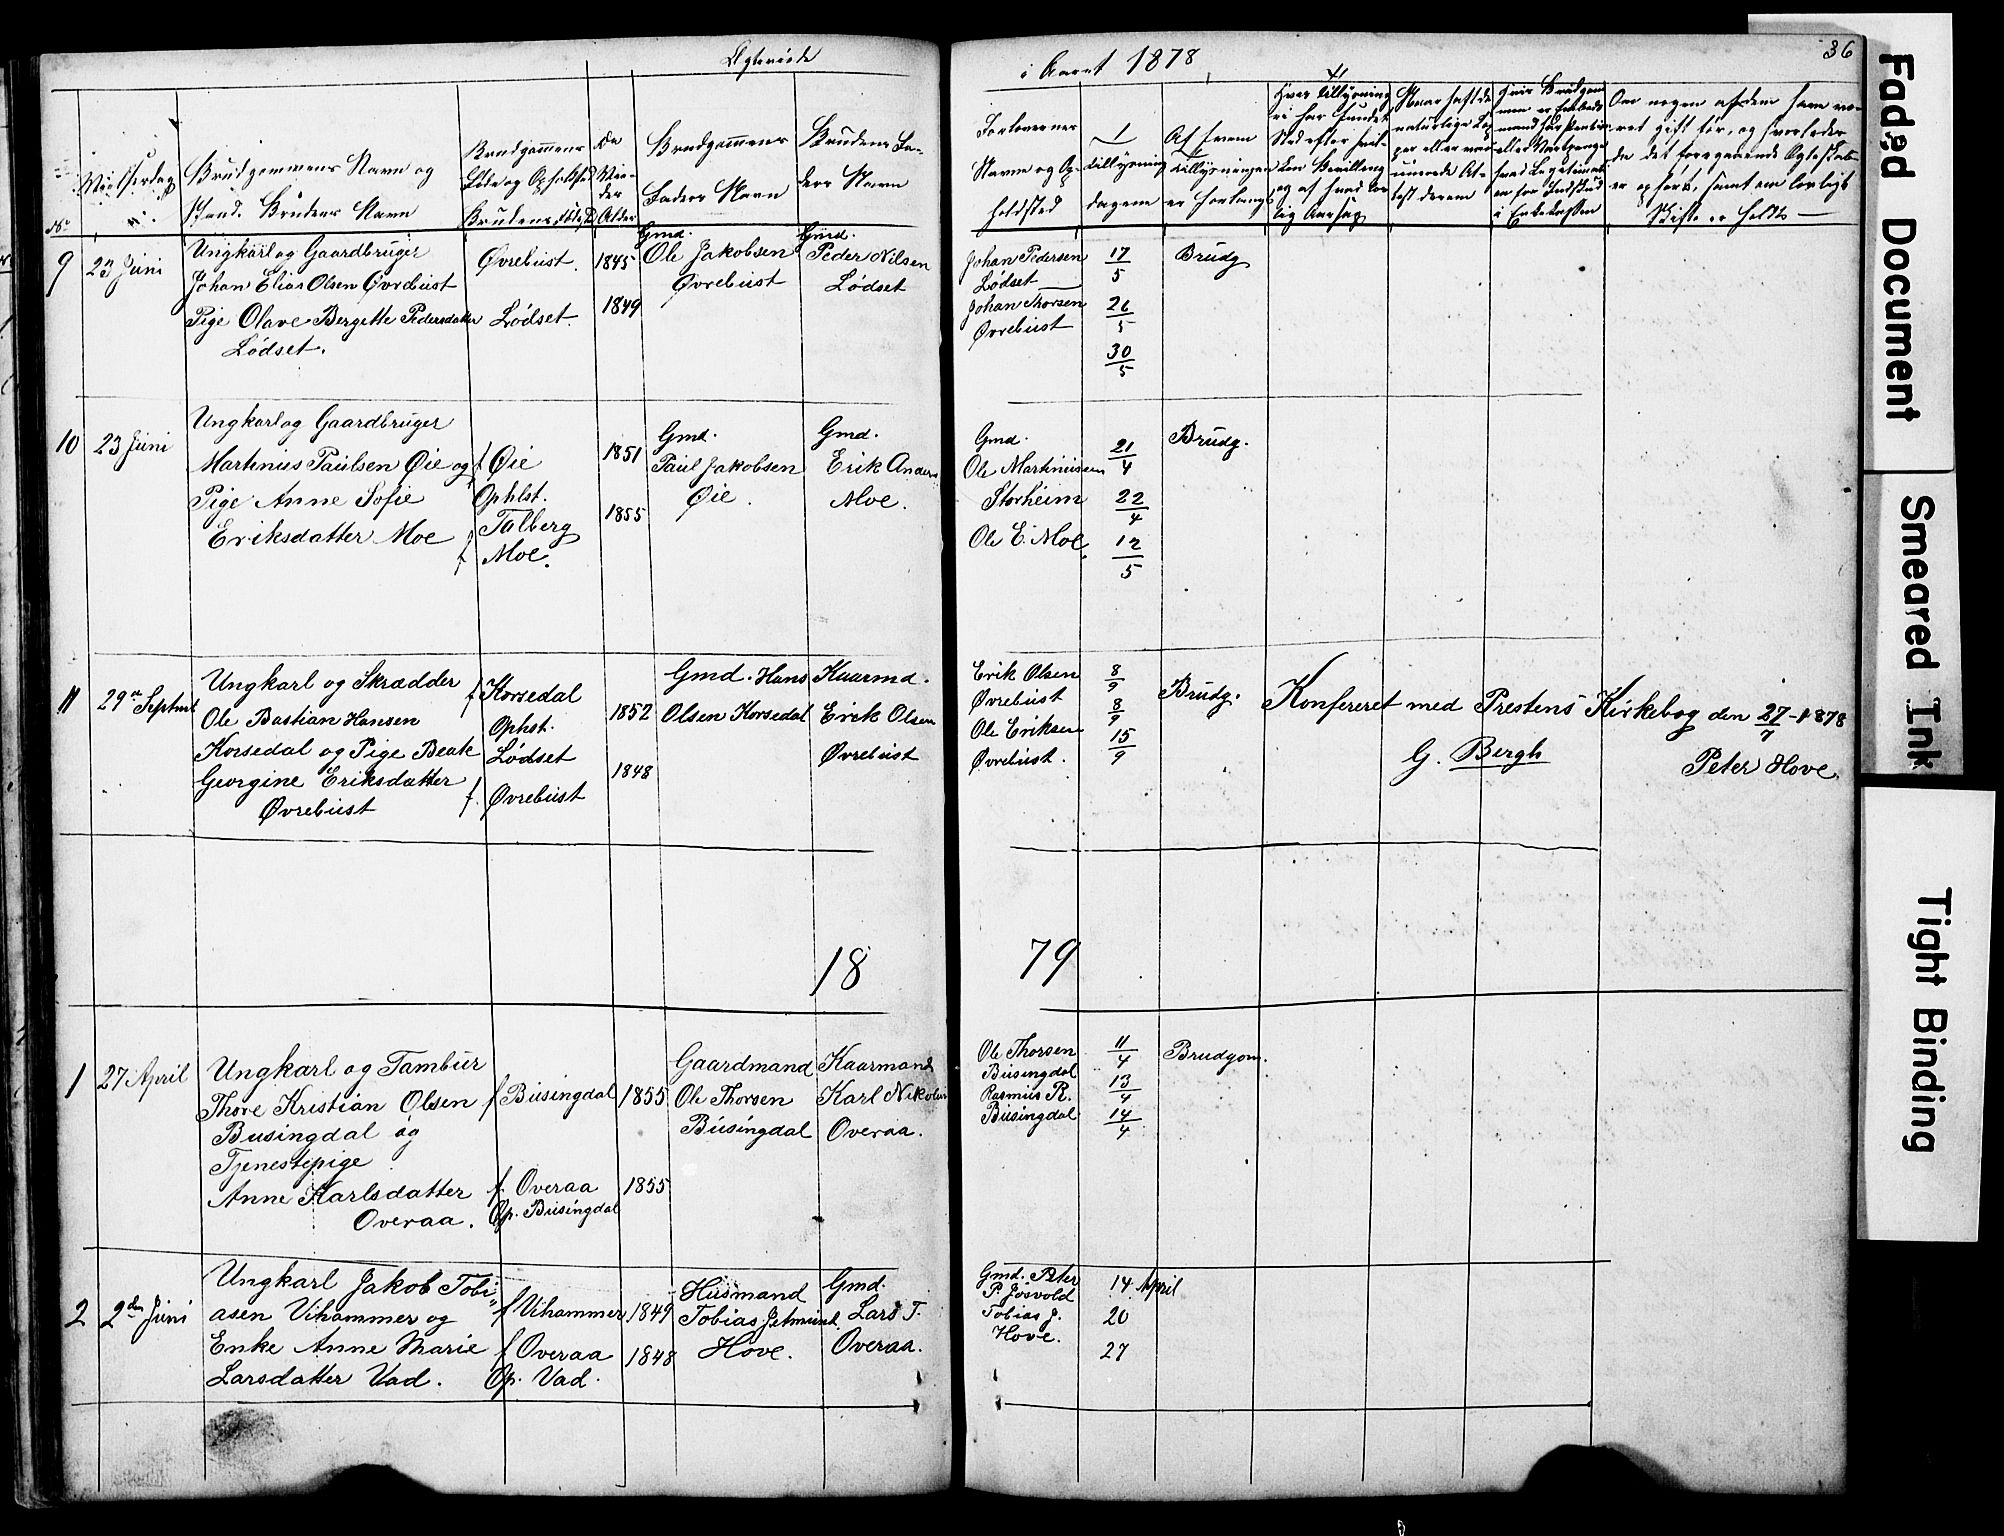 Ægteviede
i Aaret 1878
36
No
Vielsesdag
Brudgommens Navn og
Stand. Brudens Navn
Brudgommens
Føde og Opholdsted
Brudens ditto
De
Vie-
des
Alder
Brudgommens
Faders Navn
Brudens Fa-
ders Navn
Forlovernes
Navne og Op-
holdsted
Tillysnings
dagene
Af hvem
Tillysningen
er forlangt
9
23 Juni
Ungkarl og Gaardbruger
Johan Elias Olsen Øvrebust
Pige Olave Bergette Pedersdatter
Lødset.
Øvrebust.
Lødset.
1845
1849
Gmd.
Ole Jakobsen
Øvrebust
Gmd.
Peder Nilsen
Lødset
Johan Pedersen
Lødset
Johan Thorsen
Øvrebust
17/5
26/5
30/5
Brudg
10
23 Juni
Ungkarl og Gaardbruger
Martinus Paulsen Øie og
Pige Anne Sofie
Eriksdatter Moe
f Øie
Ophlst.
Talberg
f Moe.
1851
1855
Gmd.
Paul Jakobsen
Øie.
Gmd.
Erik Anders
Moe.
Gmd.
Ole Martinusen
Storheim
Ole E. Moe
21/4
22/4
12/5
Brudg.
11
29n Septmt
Ungkarl og Skrædder
Ole Bastian Hansen
Korsedal og Pige Beate
Georgine Eriksdatter
Øvrebust
f Korsedal
Ophst.
Lødset
f. Øvrebust
1852
1848
Gmd. Hans
Olsen Korsedal
Kaarmd.
Erik Olsen
Øvrebust
Erik Olsen
Øvrebust
Ole Eriksen
Øvrebust.
8/9
8/9
15/9
Brudg.
Konfereret med Prestens Kirkebog den 27/7-1878
G. Bergh
Peter Hove
18
79
1
27 April
Ungkarl og Tambur
Thore Kristian Olsen
Busingdal og
Tjenestepige
Anne Karlsdatter
Overaa.
f Busingdal
f. Overaa
Op. Busingdal
1855
1855
Gaardmand
Ole Thorsen
Busingdal
Kaarmand
Karl Nikolai
Overaa.
Ole Thorsen
Busingdal
Rasmus R.
Busingdal
11/4
13/4
14/4
Brudgom.
2
2den Juni
Ungkarl Jakob Tobi-
asen Vihammer og
Enke Anne Marie
Larsdatter Vad.
f Vihammer
f Overaa
Op. Vad.
1849
1848
Husmand
Tobias Jetmund.
Hove.
Gmd.
Lars T.
Overaa.
Gmd. Peter
P. Josvold
Tobias J.
Hove.
14 April
20
27
Faded Document
Smeared Ink
Tight Binding